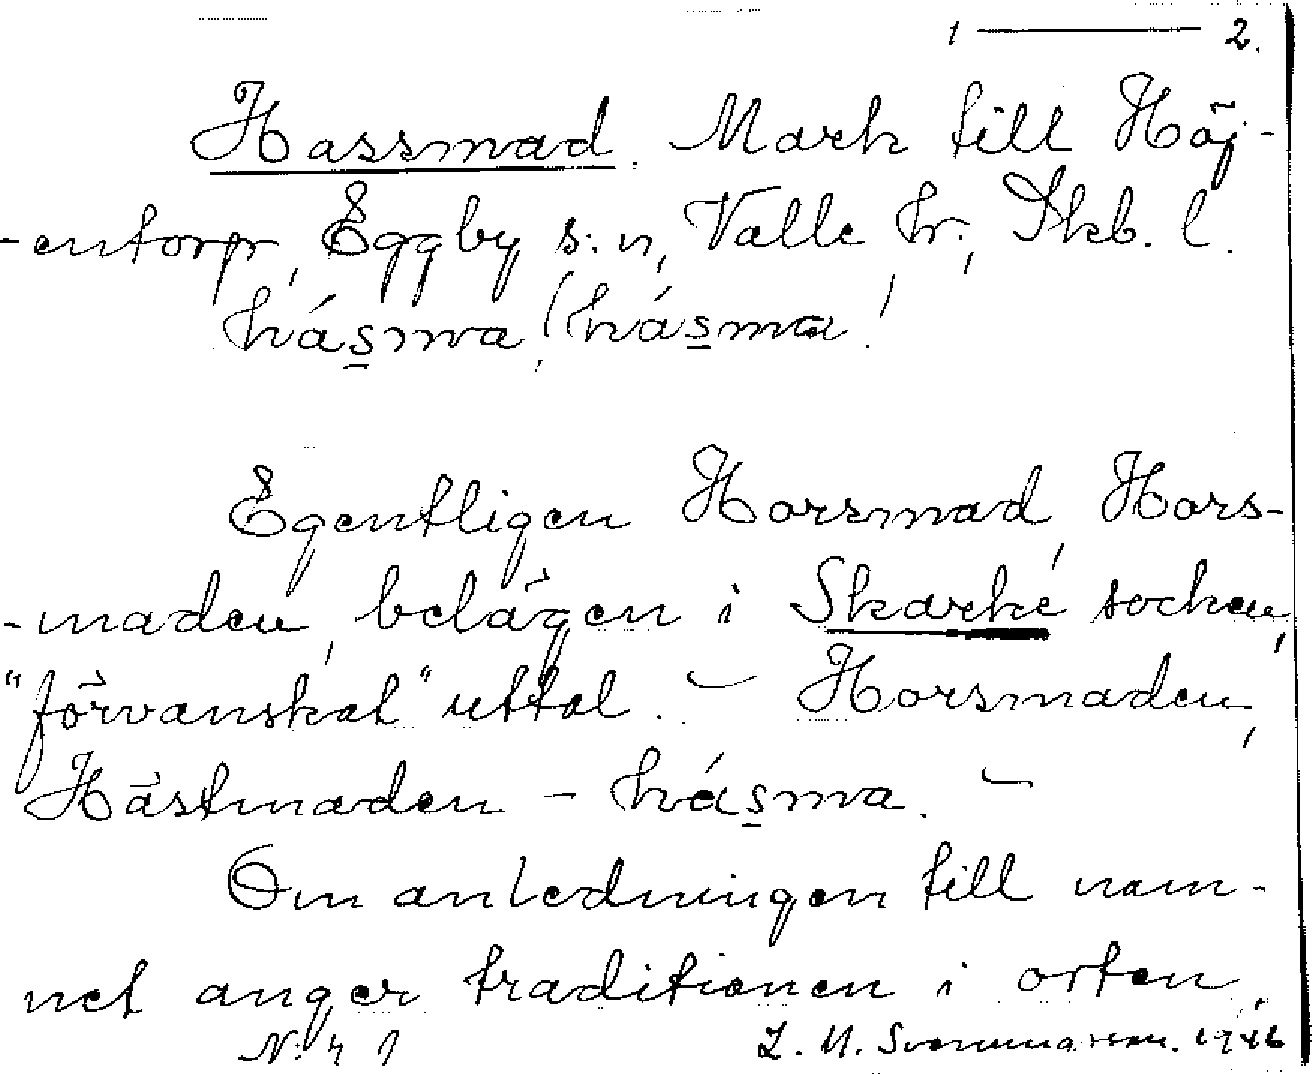 1 — 2.
Hassmad. Mark till Höj-
-entorp, Eggby s:n, Valle hr., Skb. l.
hásma! (hásma!
Egentligen Horsmad, Hors-
-maden, belägen i Skarke socken,
"förvanskat" uttal. — Horsmaden,
Hästmaden - hásma. —
Om anledningen till nam-
net anger traditionen i orten,
N:r 41
L. M. Svenungsson. 1946